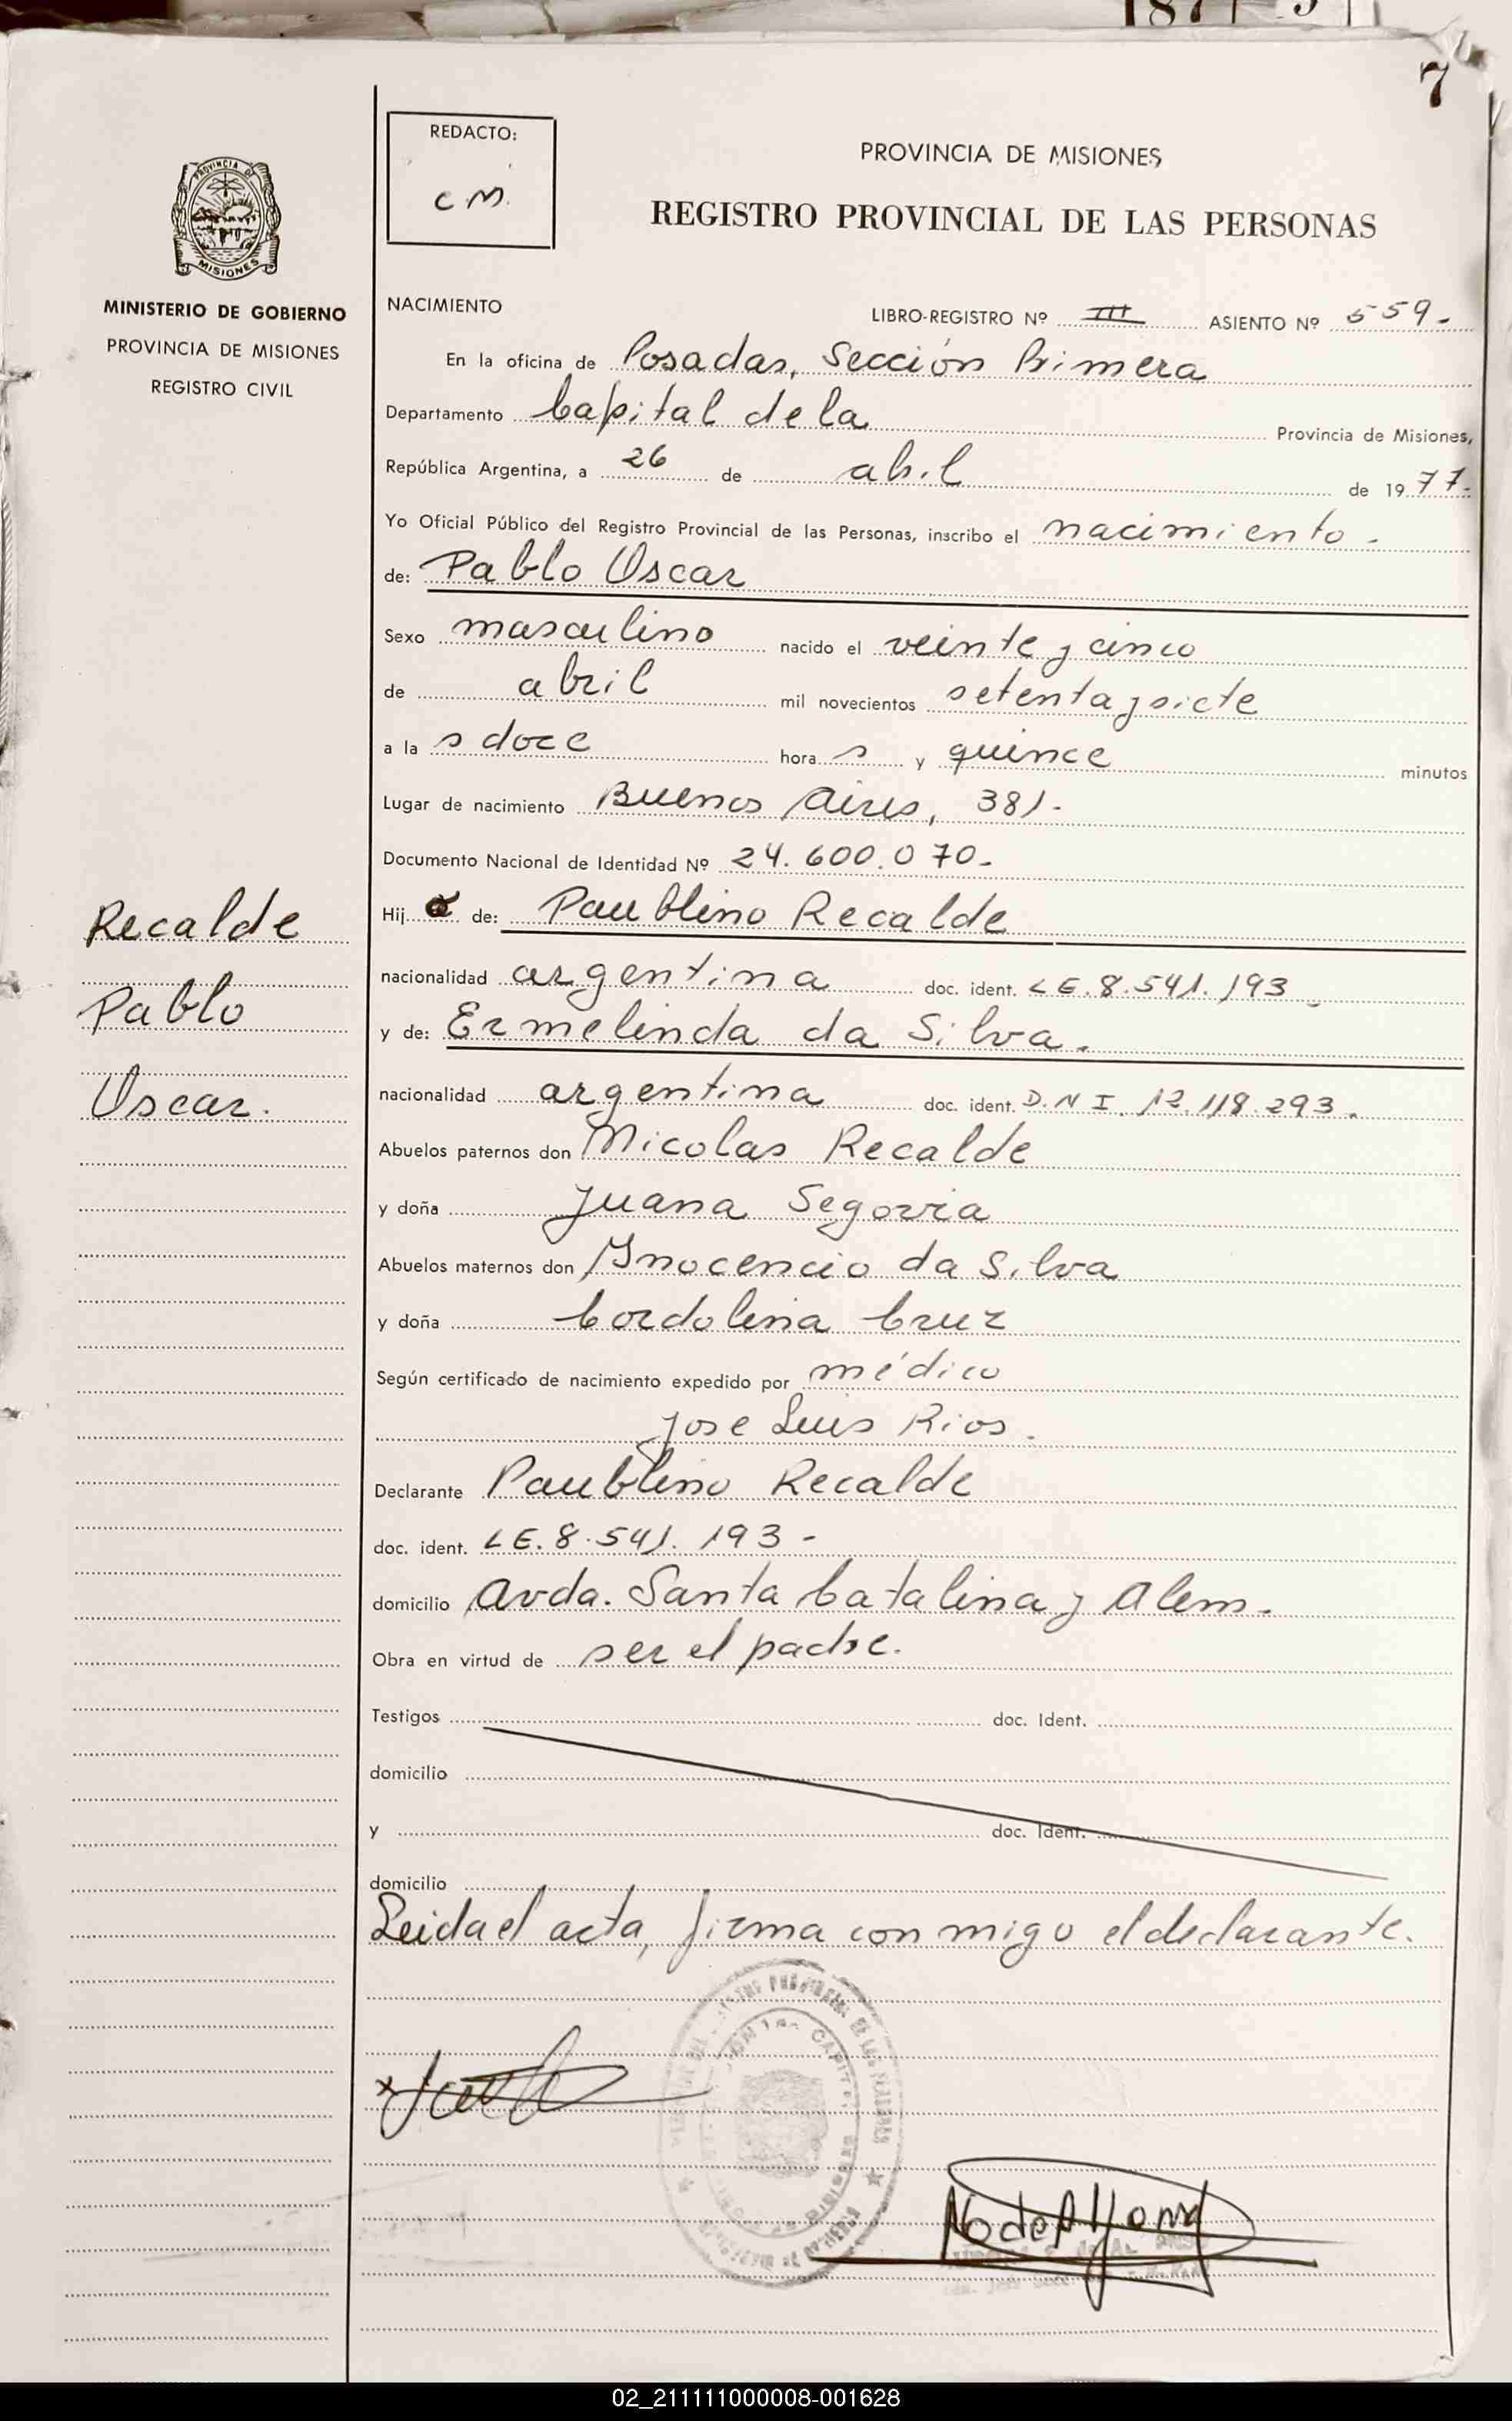 7
REDACTO:
C M.
PROVINCIA DE MISIONES
REGISTRO PROVINCIAL DE LAS PERSONAS
PROVINCIA DE
MISIONES
MINISTERIO DE GOBIERNO
PROVINCIA DE MISIONES
REGISTRO CIVIL
NACIMIENTO LIBRO-REGISTRO Nº III ASIENTO Nº 559-
En la oficina de Posadas, Sección Primera
Departamento Capital de la Provincia de Misiones,
República Argentina, a 26 de abril de 1977-
Yo Oficial Público del Registro Provincial de las Personas, inscribo el nacimiento -
de: Pablo Oscar
Sexo masculino nacido el veinte y cinco
de abril mil novecientos setenta y siete
a la s doce hora s y quince minutos
Lugar de nacimiento Buenos Aires, 381-
Documento Nacional de Identidad Nº 24.600.070-
Hij o de: Paublino Recalde
nacionalidad argentina doc. ident. LE.8.541.193
y de: Ermelinda da Silva.
nacionalidad argentina doc. ident. D.N I. 12.118.293.
Abuelos paternos don Nicolas Recalde
y doña Juana Segovia
Abuelos maternos don Inocencio da Silva
y doña Cordolina Cruz
Según certificado de nacimiento expedido por médico
Jose Luis Rios.
Declarante Paublino Recalde
doc. ident. LE.8.541.193-
domicilio Avda. Santa Catalina y Alem.
Obra en virtud de ser el padre.
Testigos doc. Ident.
domicilio
y doc. Ident.
domicilio
Leida el acta, firma con migo el declarante.
Recalde
Pablo
Oscar.
02_211111000008-001628